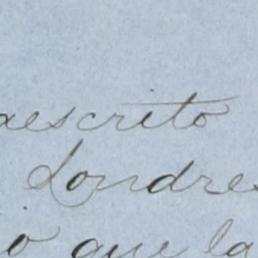 aescrito
Londres
o que la